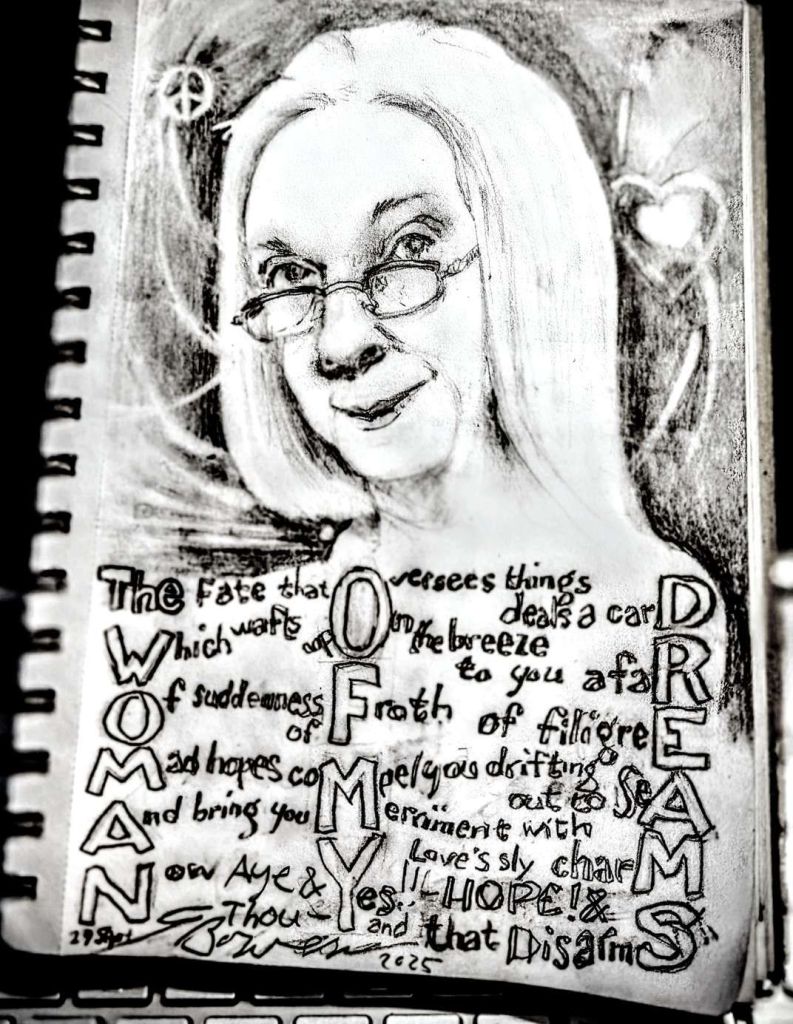 The Fate that Oversees things deals a carD
Which wafts up On the breeze to you afaR
Of suddenness of Froth of filigreE
Mad hopes coMpel you drifting out to SeA
And bring you Merriment with Love's sly charM
Now Aye & Yes!! - HOPE! &
Thou - and that DisarmS
29 Sept Bowen 2025